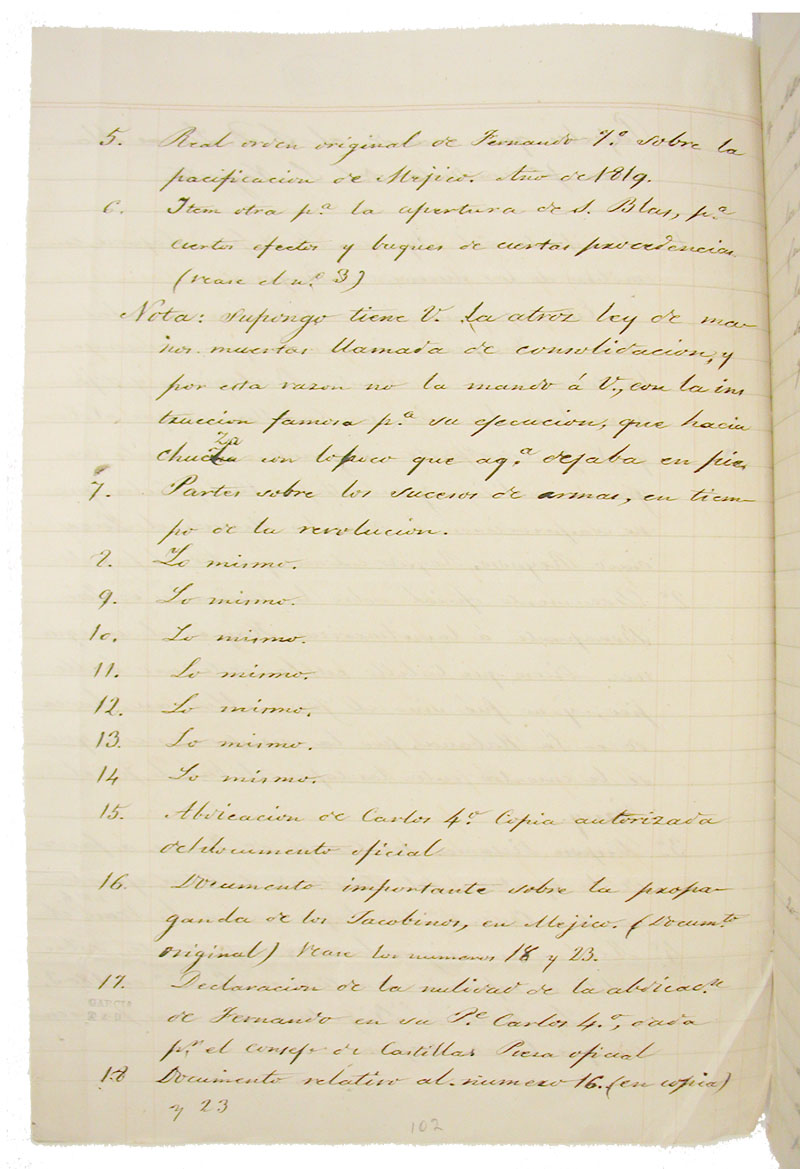 5. Real orden original de Fernando 7.º sobre la
pacificacion de Mejico. Año de 1819.
6. Item otra p.ª la apertura de S. Blas, p.ª
ciertos efectos y buques de ciertas procedencias
(vease el n.º 3)
Nota: Supongo tiene V. La atroz ley de ma-
nos muertas llamada de consolidacion, y
por esta razon no la mando á V., con la ins
truccion famosa p.ª su ejecucion, que hacia
chuza con lo poco que aq.ª dejaba en pie.
7. Partes sobre los sucesos de armas, en tiem-
po de la revolucion.
8. Lo mismo.
9. Lo mismo.
10. Lo mismo.
11. Lo mismo.
12. Lo mismo.
13. Lo mismo.
14 Lo mismo.
15. Abdicacion de Carlos 4.º Copia autorizada
del documento oficial
16. Documento importante sobre la propa-
ganda de los Jacobinos, en Mejico. (Docum.to
original) Vease los numeros 18 y 23.
17. Declaracion de la nulidad de la abdicac.n
de Fernando en su P.e Carlos 4.º, dada
p.r el consejo de Castilla. Pieza oficial
18 Documento relativo al numero 16. (en copia)
y 23
102